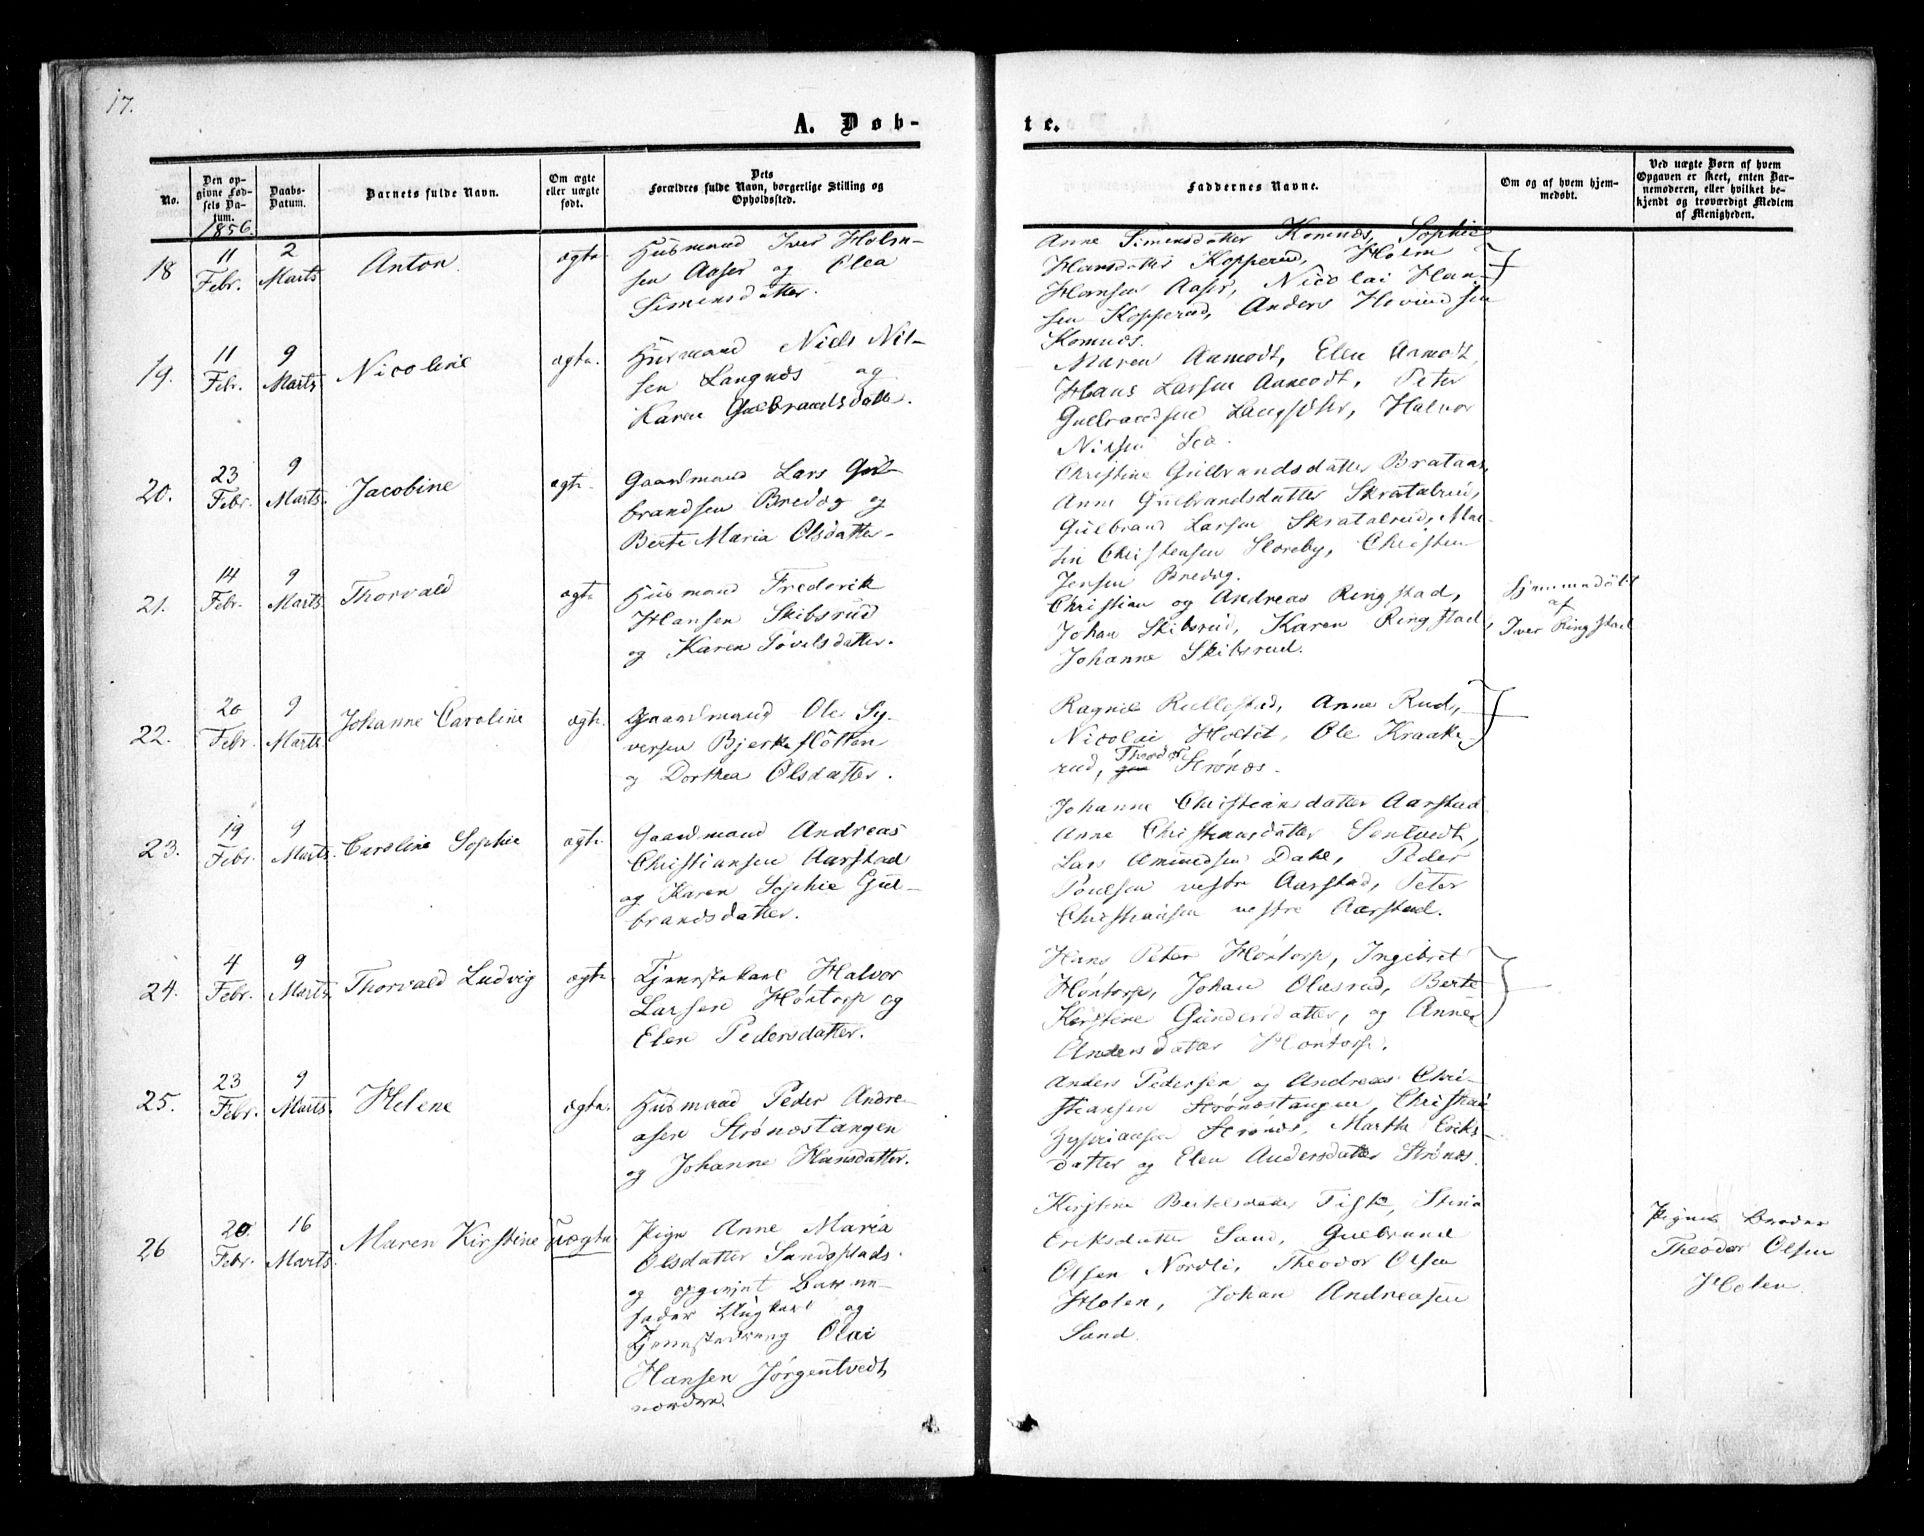 17.
A. Døb-
te.
No.
Den op-
givne Fød-
sels Da-
tum.
1856.
Daabs-
Datum.
Barnets fulde Navn.
Om ægte
eller uægte
født.
Dets
Forældres fulde Navn, borgerlige Stilling og
Opholdssted.
Faddernes Navne.
Om og af hvem hjem-
medøbt.
Ved uægte Børn af hvem
Opgaven er skeet, enten Bar-
nemoderen, eller hvilket be-
kjendt og troværdigt Medlem
af Menigheden.
18
11
Febr.
2
Marts
Anton
ægte
Husmand Iver Holm-
sen Aaser og Olea
Simensdatter.
Anne Simensdatter Komnæs, Sophie
Hansdatter Kopperud, Holm
Hansen Aaser, Nicolai Han-
sen Kopperud, Anders Hovindsen
Komnæs.
19.
11
Febr.
9
Marts
Nicoline
ægte.
Husmand Niels Nil-
sen Langnæs og
Karen Gulbrandsdatter.
Maren Aamodt, Elen Aamodt,
Hans Larsen Aamodt, Peter
Gulbrandsen Langsæter, Halvor
Nilsen Lea.
20.
23
Febr.
9
Marts.
Jacobine
ægte.
Gaardmand Lars Gul-
brandsen Bredog og
Berte Maria Olsdatter.
Christine Gulbrandsdatter Brataas,
Anne Gulbrandsdatter Skratalrud,
Gulbrand Larsen Skratalrud, Mar-
tin Christensen Storeby, Christen
Jensen Bredog.
21.
14
Febr.
9
Marts
Thorvald
ægte
Husmand Frederik
Hansen Skibsrud
og Karen Tovelsdatter.
Christian og Andreas Ringstad,
Johan Skibsrud, Karen Ringstad,
Johanne Skibsrud.
Hjemmedøbt
af
Iver Ringstad
22.
20
Febr.
9
Marts
Johanne Caroline
ægte.
Gaardmand Ole Sy-
versen Bjerkeflötten
og Dorthea Olsdatter.
Ragnil Rullestad, Anne Rud,
Nicolai Holtet, Ole Kraake-
rud, Theodor Strønæs.
23.
19
Febr.
9
Marts.
Caroline Sophie
ægte.
Gaardmand Andreas
Christiansen Aarstad
og Karen Sophie Gul-
brandsdatter.
Johanne Christiansdatter Aarstad
Anne Christiansdatter Sentvedt,
Lars Amundsen Dahl, Peder
Poulsen vestre Aarstad, Peter
Christiansen vestre Aarstad.
24.
4
Febr.
9
Marts.
Thorvald Ludvig
ægte.
Tjenestekarl Halvor
Larsen Höntorp og
Elen Pedersdatter.
Hans Peter Höntorp, Ingebret
Höntorp, Johan Olasrud, Berte
Kirstine Gundersdatter, og Anne
Andersdatter Höntorp.
25.
23
Febr.
9
Marts.
Helene
ægte.
Husmand Peder Andre-
asen Strønæstangen
og Johanne Hansdatter.
Anders Pedersen og Andreas Chri-
stiansen Strønæstangen, Christian
Zypriansen Strønæs, Marthe Eriks-
datter og Elen Andersdatter Strønæs.
26
20
Febr.
16
Marts.
Maren Kirstine
Uægte.
Pige Anne Maria
Olsdatter Sandsplads.
og opgivent Barne-
fader Ungkarl og
Tjenestedreng Olai
Hansen Jørgentvedt
nordre.
Kirstine Bertelsdatter Fisk, Stina
Eriksdatter Sand, Gulbrand
Olsen Nordli, Theodor Olsen
Holen, Johan Andreasen
Sand.
Pigens Broder
Theodor Olsen
Holen.